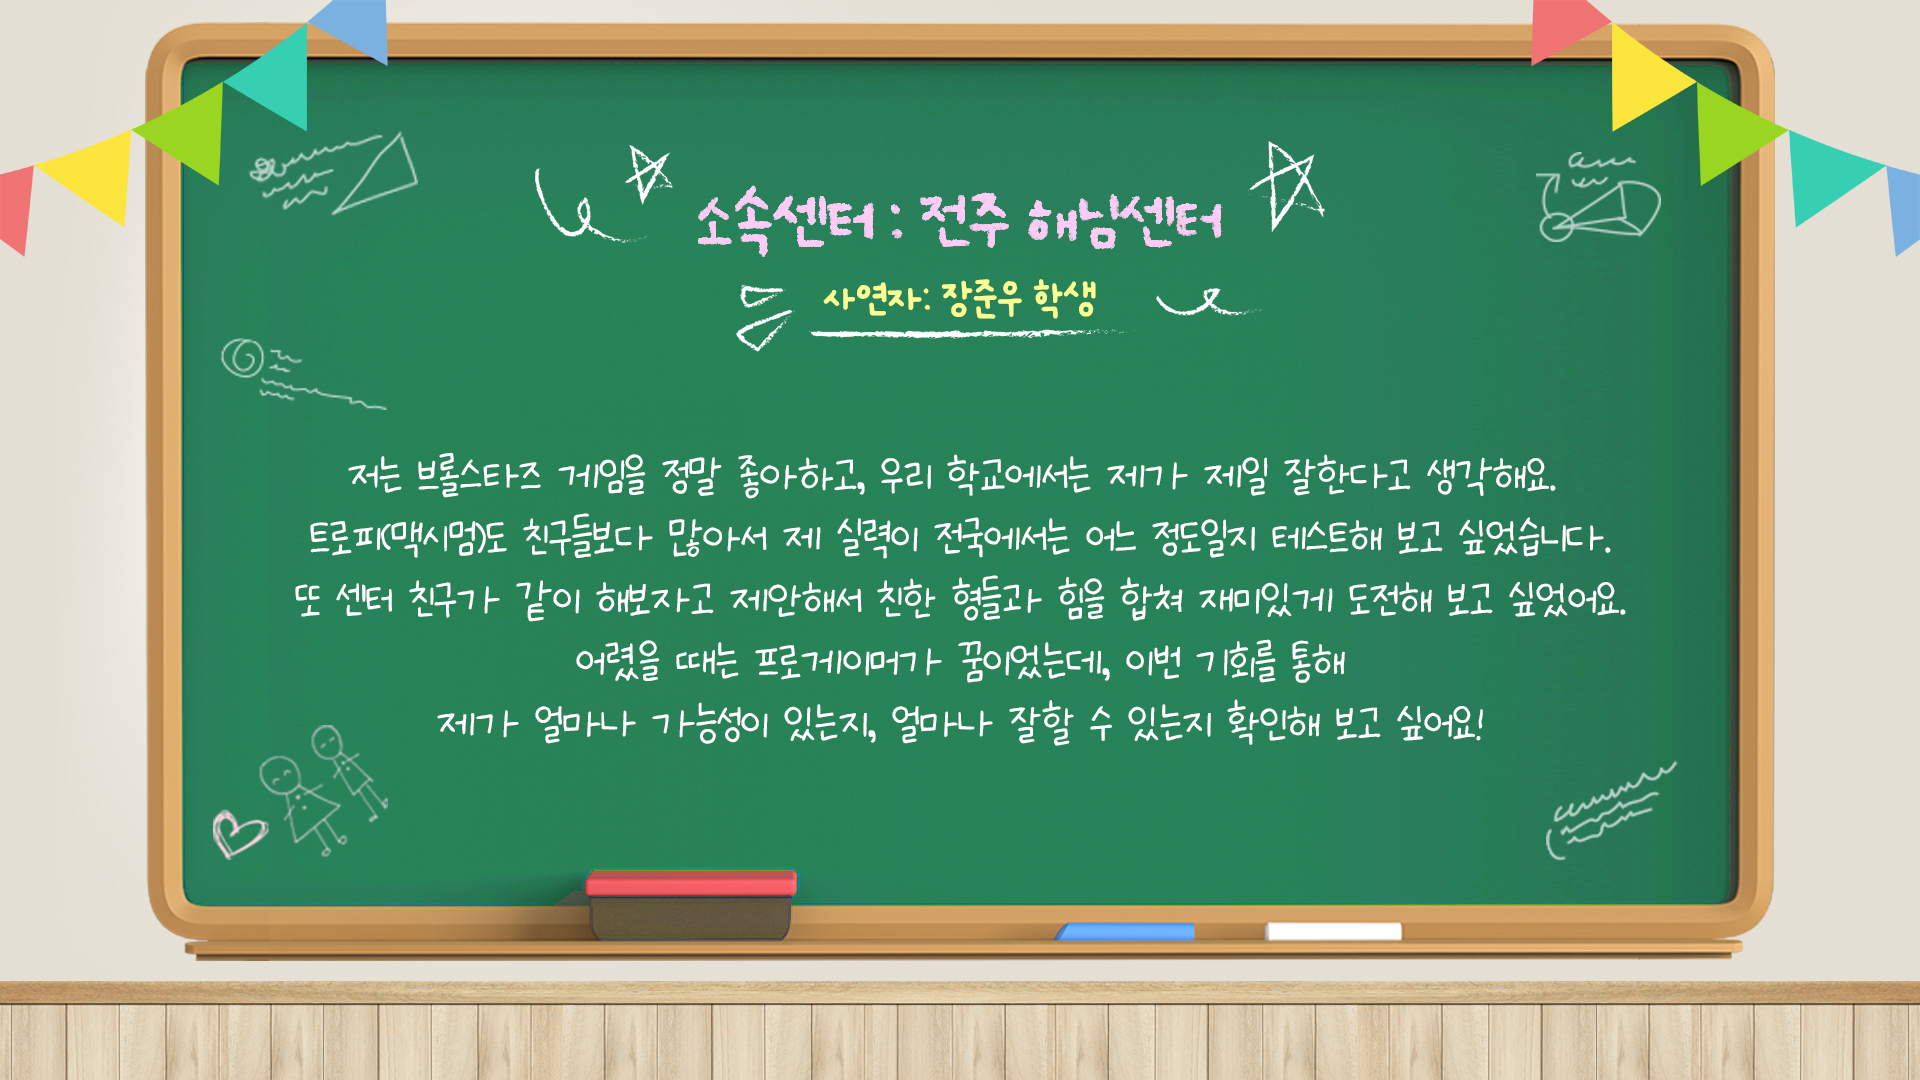 소속센터 : 전주 해님센터
사연자: 장준우 학생
저는 브롤스타즈 게임을 정말 좋아하고, 우리 학교에서는 제가 제일 잘한다고 생각해요.
트로피(맥시멈)도 친구들보다 많아서 제 실력이 전국에서는 어느 정도일지 테스트해 보고 싶었습니다.
또 센터 친구가 같이 해보자고 제안해서 친한 형들과 힘을 합쳐 재미있게 도전해 보고 싶었어요.
어렸을 때는 프로게이머가 꿈이었는데, 이번 기회를 통해
제가 얼마나 가능성이 있는지, 얼마나 잘할 수 있는지 확인해 보고 싶어요!